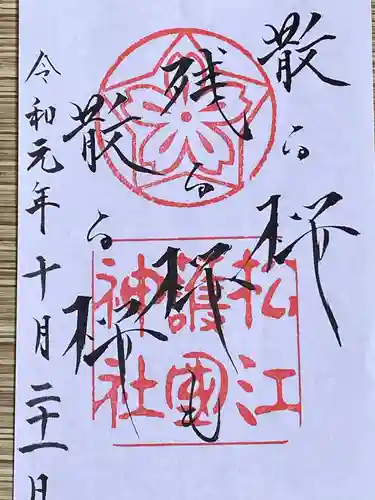 散る桜
残る桜も
散る桜
令和元年十月二十一日
松江
護國
神社